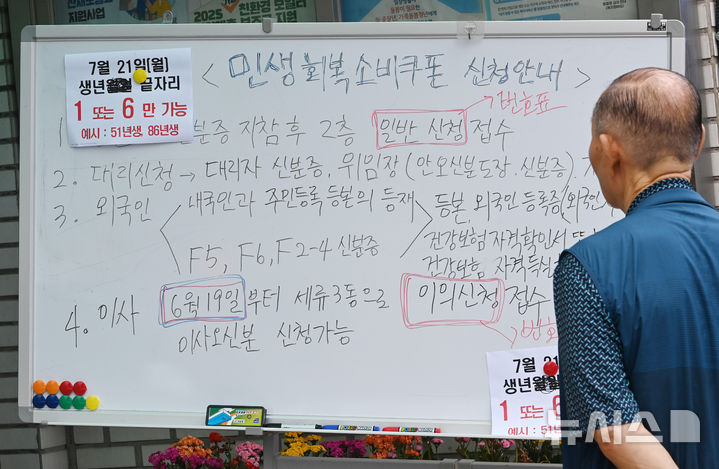 2025 친환경
지원사업
7월 21일(월)
생년 끝자리
1 또는 6 만 가능
예시 : 51년생, 86년생
< 민생회복 소비쿠폰 신청안내 >
번호표
1 분증 지참 후 2층 일반 신청 접수
2. 대리신청 → 대리자 신분증, 위임장 (안오신분도장.신분증)
3. 외국인
내국인과 주민등록 등본의 등재
등본, 외국인 등록증(외국인
F5, F6, F2-4 신분증
건강보험 자격확인서
건강보험 자격득실
4. 이사 6월19일부터 세류3동으로 이의신청 접수
이사오신분 신청가능
7월 21
생년
1 또는 6
예시 : 51년
뉴시스